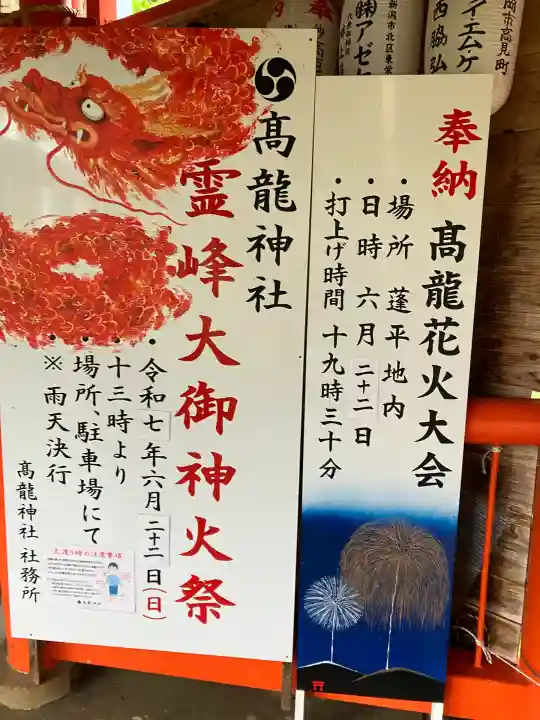 岡市高見町
イエム・ケ
西脇弘
新潟市北区東栄
㈱アゼ
奉納
髙龍花火大会
・場所 蓬平地内
・日時 六月二十二日
・打上げ時間 十九時三十分
髙龍神社
霊峰大御神火祭
・令和七年六月二十二日(日)
・十三時より
・場所、駐車場にて
※ 雨天決行
髙龍神社 社務所
火渡り時の注意事項